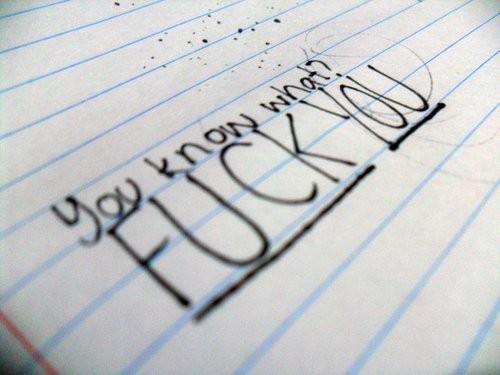 You know what?
FUCK YOU